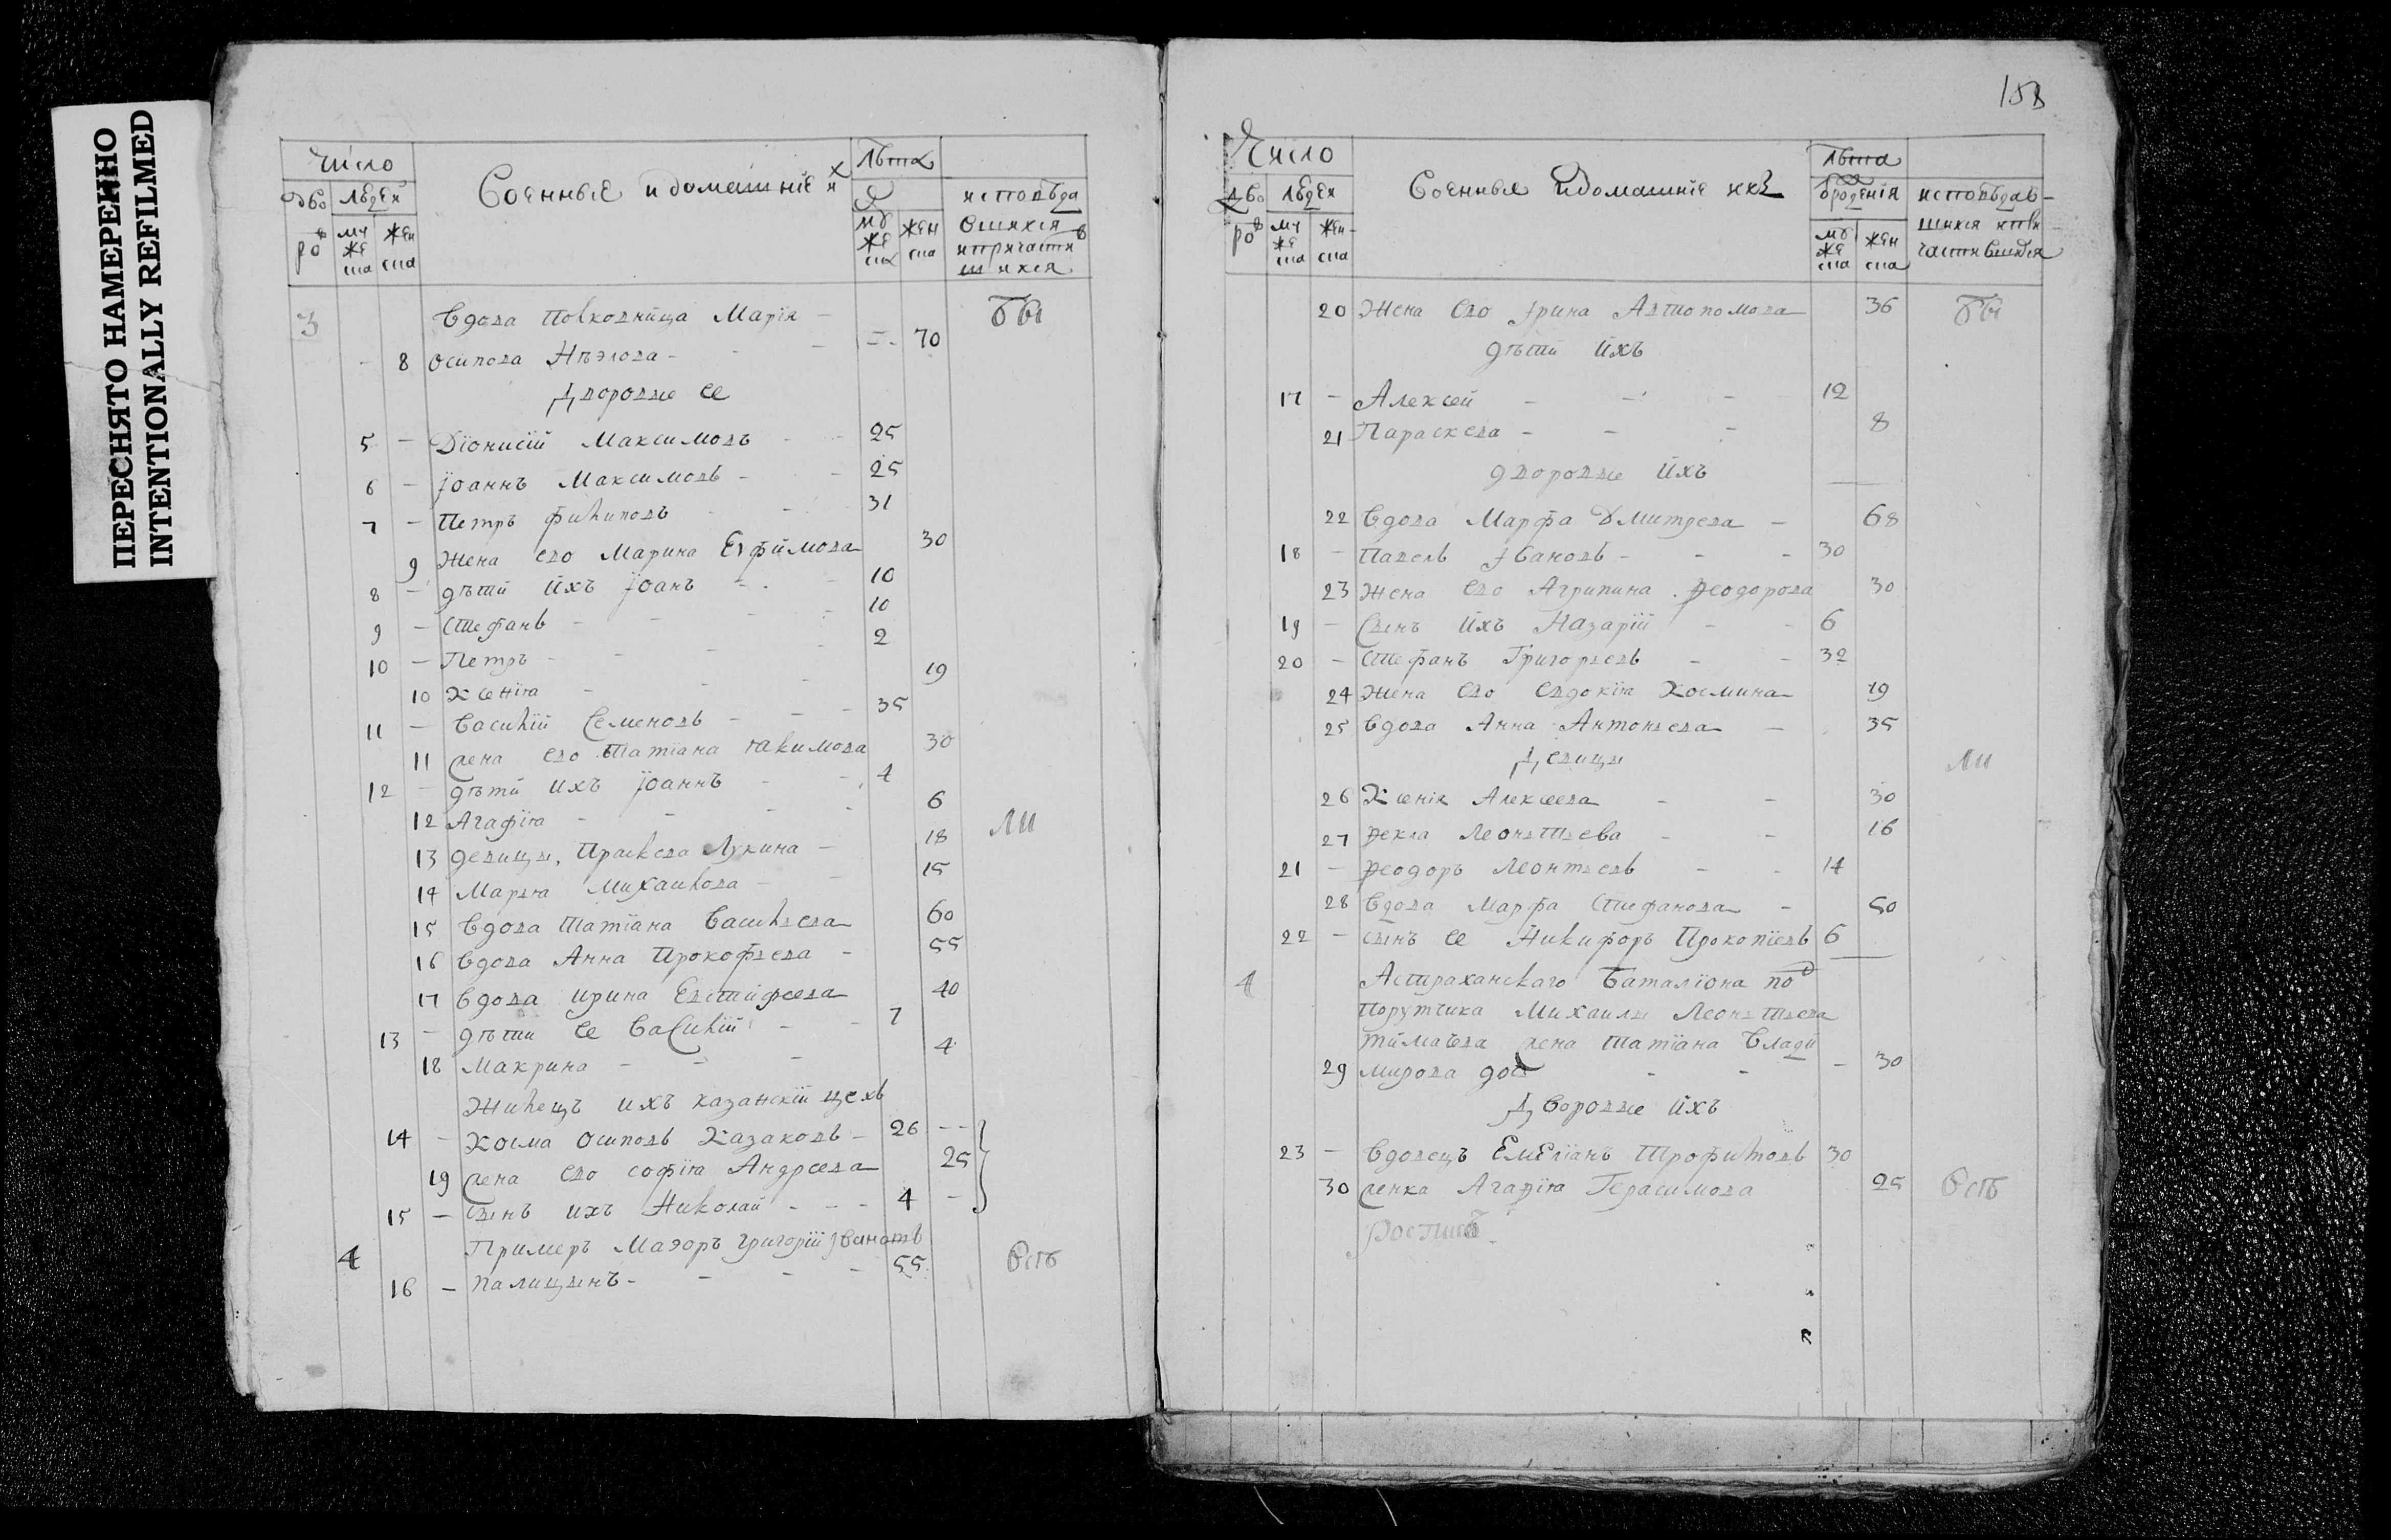 ПЕРЕСНЯТО НАМЕРЕННО
INTENTIONALLY REFILMED
Число
Лѣта
дво ро въ
людей
муже ска
жен ска
Военныѣ и домашніе их
исповѣда
вшихся
и причасти в
шихся
3
Вдова Полковница Марія - бы
- 8 Осипова Нѣэлова - -- 70
Дворовые ее
5 - Діонисій Максимовъ - 25
6 - Іоаннъ Максимовъ - 25
7 - Петръ Филиповъ - 31
9 Жена ево Марина Евфимова 30
8 - дѣти ихъ Іоанъ - 10
9 - Стефанъ - - - 10
10 - Петръ - - - 2
10 Ксенія - - - 19
11 - Василій Семеновъ - - 35
11 жена ево Татіана Иакимова 30
12 - дѣти ихъ Іоаннъ - - 4
12 Агафіиа - - - 6
13 девицы, Прасковя Лукина - 18 ли
14 Марѳа Михайлова - - 15
15 Вдова Татіана Васильева 60
16 Вдова Анна Прокофьева - 55
17 Вдова Ирина Евстифеева 40
13 - дѣти ее Василій - - 7
18 Макрина - - - 4
Жилецъ ихъ казанскій цехъ
14 - Косма Осиповъ Казаковъ - 26 --
19 жена ево Софія Андреева 25
15 - Сынъ ихъ Николай - - - 4 -
4 Примеръ Маэоръ Григорій Ивановъ
16 - Палицынъ - - - - 55 Есть
158
Число
Лѣта
дво ро въ
людей
Военныя и домашніе ихъ
вроженія
исповѣдав-
шихся и при-
частившихся
муже ска
жен ска
20 Жена ево Ирина Автономова 36 бы
дѣти ихъ
17 - Алексей - - - 12
21 Параскева - - - 8
дворовые ихъ
22 Вдова Марфа Дмитрева - 68
18 - Павелъ Ивановъ - - - 30
23 Жена ево Агрипина Ѳеодорова 30
19 - Сынъ ихъ Назарій - - 6
20 - Стефанъ Григорьевъ - - 32
24 Жена ево Евдокія Космина 19
25 Вдова Анна Антоньева - 35
Девицы ли
26 Ксенія Алексеева - - 30
27 Ѳекла Леонтьева - - 16
21 - Ѳеодоръ Леонтьевъ - - 14
28 Вдова Марфа Стефанова - 50
22 - сынъ ее Никифоръ Прокопіевъ 6
4 Астраханскаго Баталіона под
Порутчика Михаилы Леонтьева
жена Татіана Влади
29 мирова доч - - - 30
Дворовые ихъ
23 - Вдовецъ Емеліанъ Трофимовъ 30
30 женка Агафіа Герасимова 25 Есть